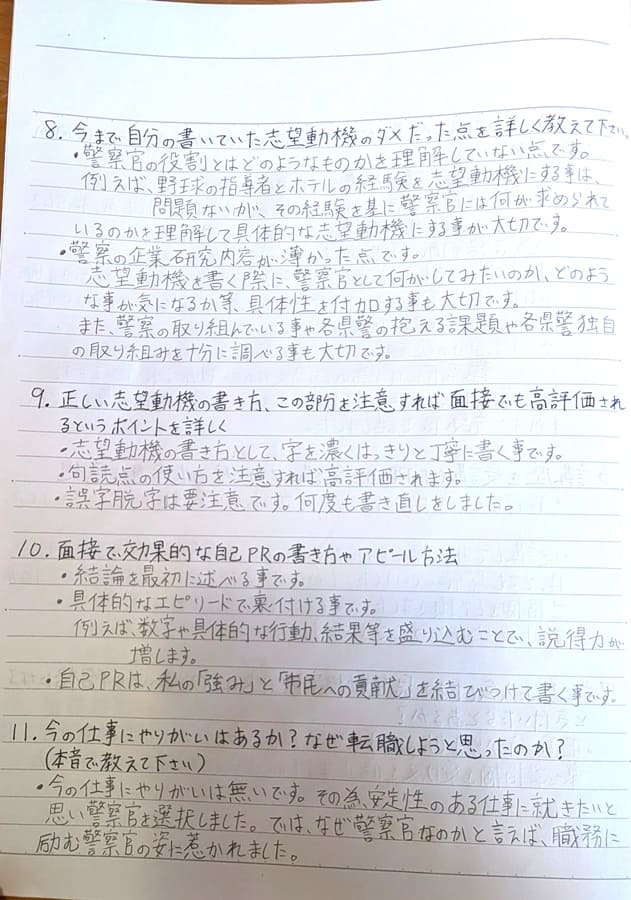 8. 今まで自分の書いていた志望動機のダメだった点を詳しく教えて下さい。
・警察官の役割とはどのようなものかを理解していない点です。
例えば、野球の指導者とホテルの経験を志望動機にする事は、
問題ないが、その経験を基に警察官には何が求められて
いるのかを理解して具体的な志望動機にする事が大切です。
・警察の企業研究内容が薄かった点です。
志望動機を書く際に、警察官として何がしてみたいのか、どのよう
な事が気になるか等、具体性を付加する事も大切です。
また、警察の取り組んでいる事や各県警の抱える課題や各県警独自
の取り組みを十分に調べる事も大切です。
9. 正しい志望動機の書き方、この部分を注意すれば面接でも高評価され
るというポイントを詳しく
・志望動機の書き方として、字を濃くはっきりと丁寧に書く事です。
・句読点の使い方を注意すれば高評価されます。
・誤字脱字は要注意です。何度も書き直しをしました。
10. 面接で効果的な自己PRの書き方やアピール方法
・結論を最初に述べる事です。
・具体的なエピソードで裏付ける事です。
例えば、数字や具体的な行動、結果等を盛り込むことで、説得力が
増します。
・自己PRは、私の「強み」と「市民への貢献」を結びつけて書く事です。
11. 今の仕事にやりがいはあるか?なぜ転職しようと思ったのか?
(本音で教えて下さい)
・今の仕事にやりがいは無いです。その為、安定性のある仕事に就きたいと
思い警察官を選択しました。では、なぜ警察官なのかと言えば、職務に
励む警察官の姿に惹かれました。